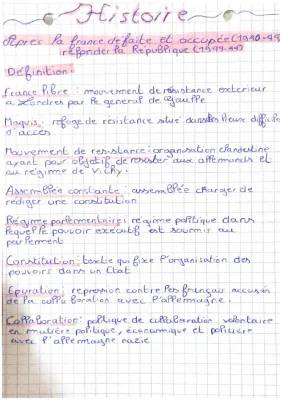 Histoire
Après la france défaite et occupée (1940-44
refonder la République (1944-47)
Définition:
France libre: mouvement de résistance exterieur
a Londres par le general de gaulle
Maquis: refuge de résistance situé dans lieux difficile
d'accès
Mouvement de resistance: organisation clandestine
ayant pour objectif de resister aux allemands et
au régime de Vichy.
Assemblée constante: assemblée charger de
rédiger une constitution
Régime parlementaire: régime politique dans
lequel le pouvoir executif est soumis au
parlement
Constitution: texte qui fixe l'organisation des
pouvoirs dans un Etat
Epuration: repression contre les français accusés
de la collaboration avec l'allemagne.
Collaboration: politique de collaboration volontaire
en matière politique, économique et policière
avec l'allemagne nazie